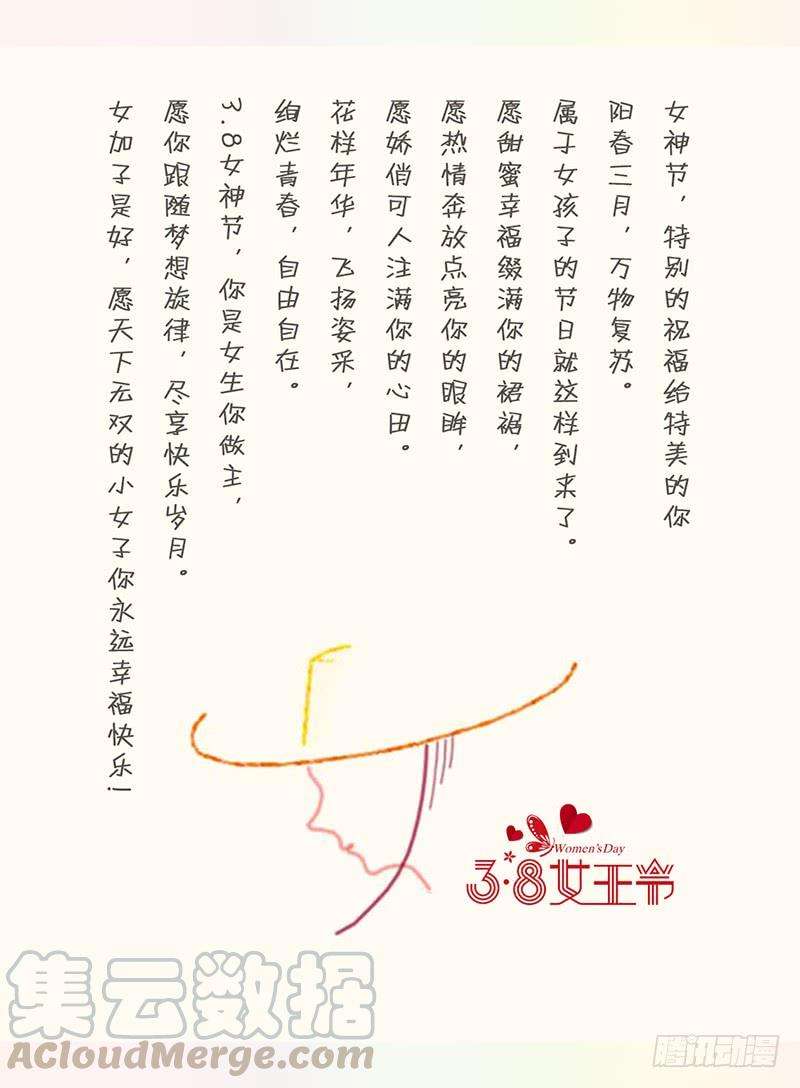 女神节，特别的祝福给特美的你
阳春三月，万物复苏。
属于女孩子的节日就这样到来了。
愿甜蜜幸福缀满你的裙裾、
愿热情奔放点亮你的眼眸、
愿娇俏可人注满你的心田。
花样年华，飞扬姿采、
绚烂青春，自由自在。
3.8女神节，你是女生你做主、
愿你跟随梦想旋律，尽享快乐岁月。
女加子是好，愿天下无双的小女子你永远幸福快乐！
Women's Day
3·8女王节
集云数据
ACloudMerge.com
腾讯动漫